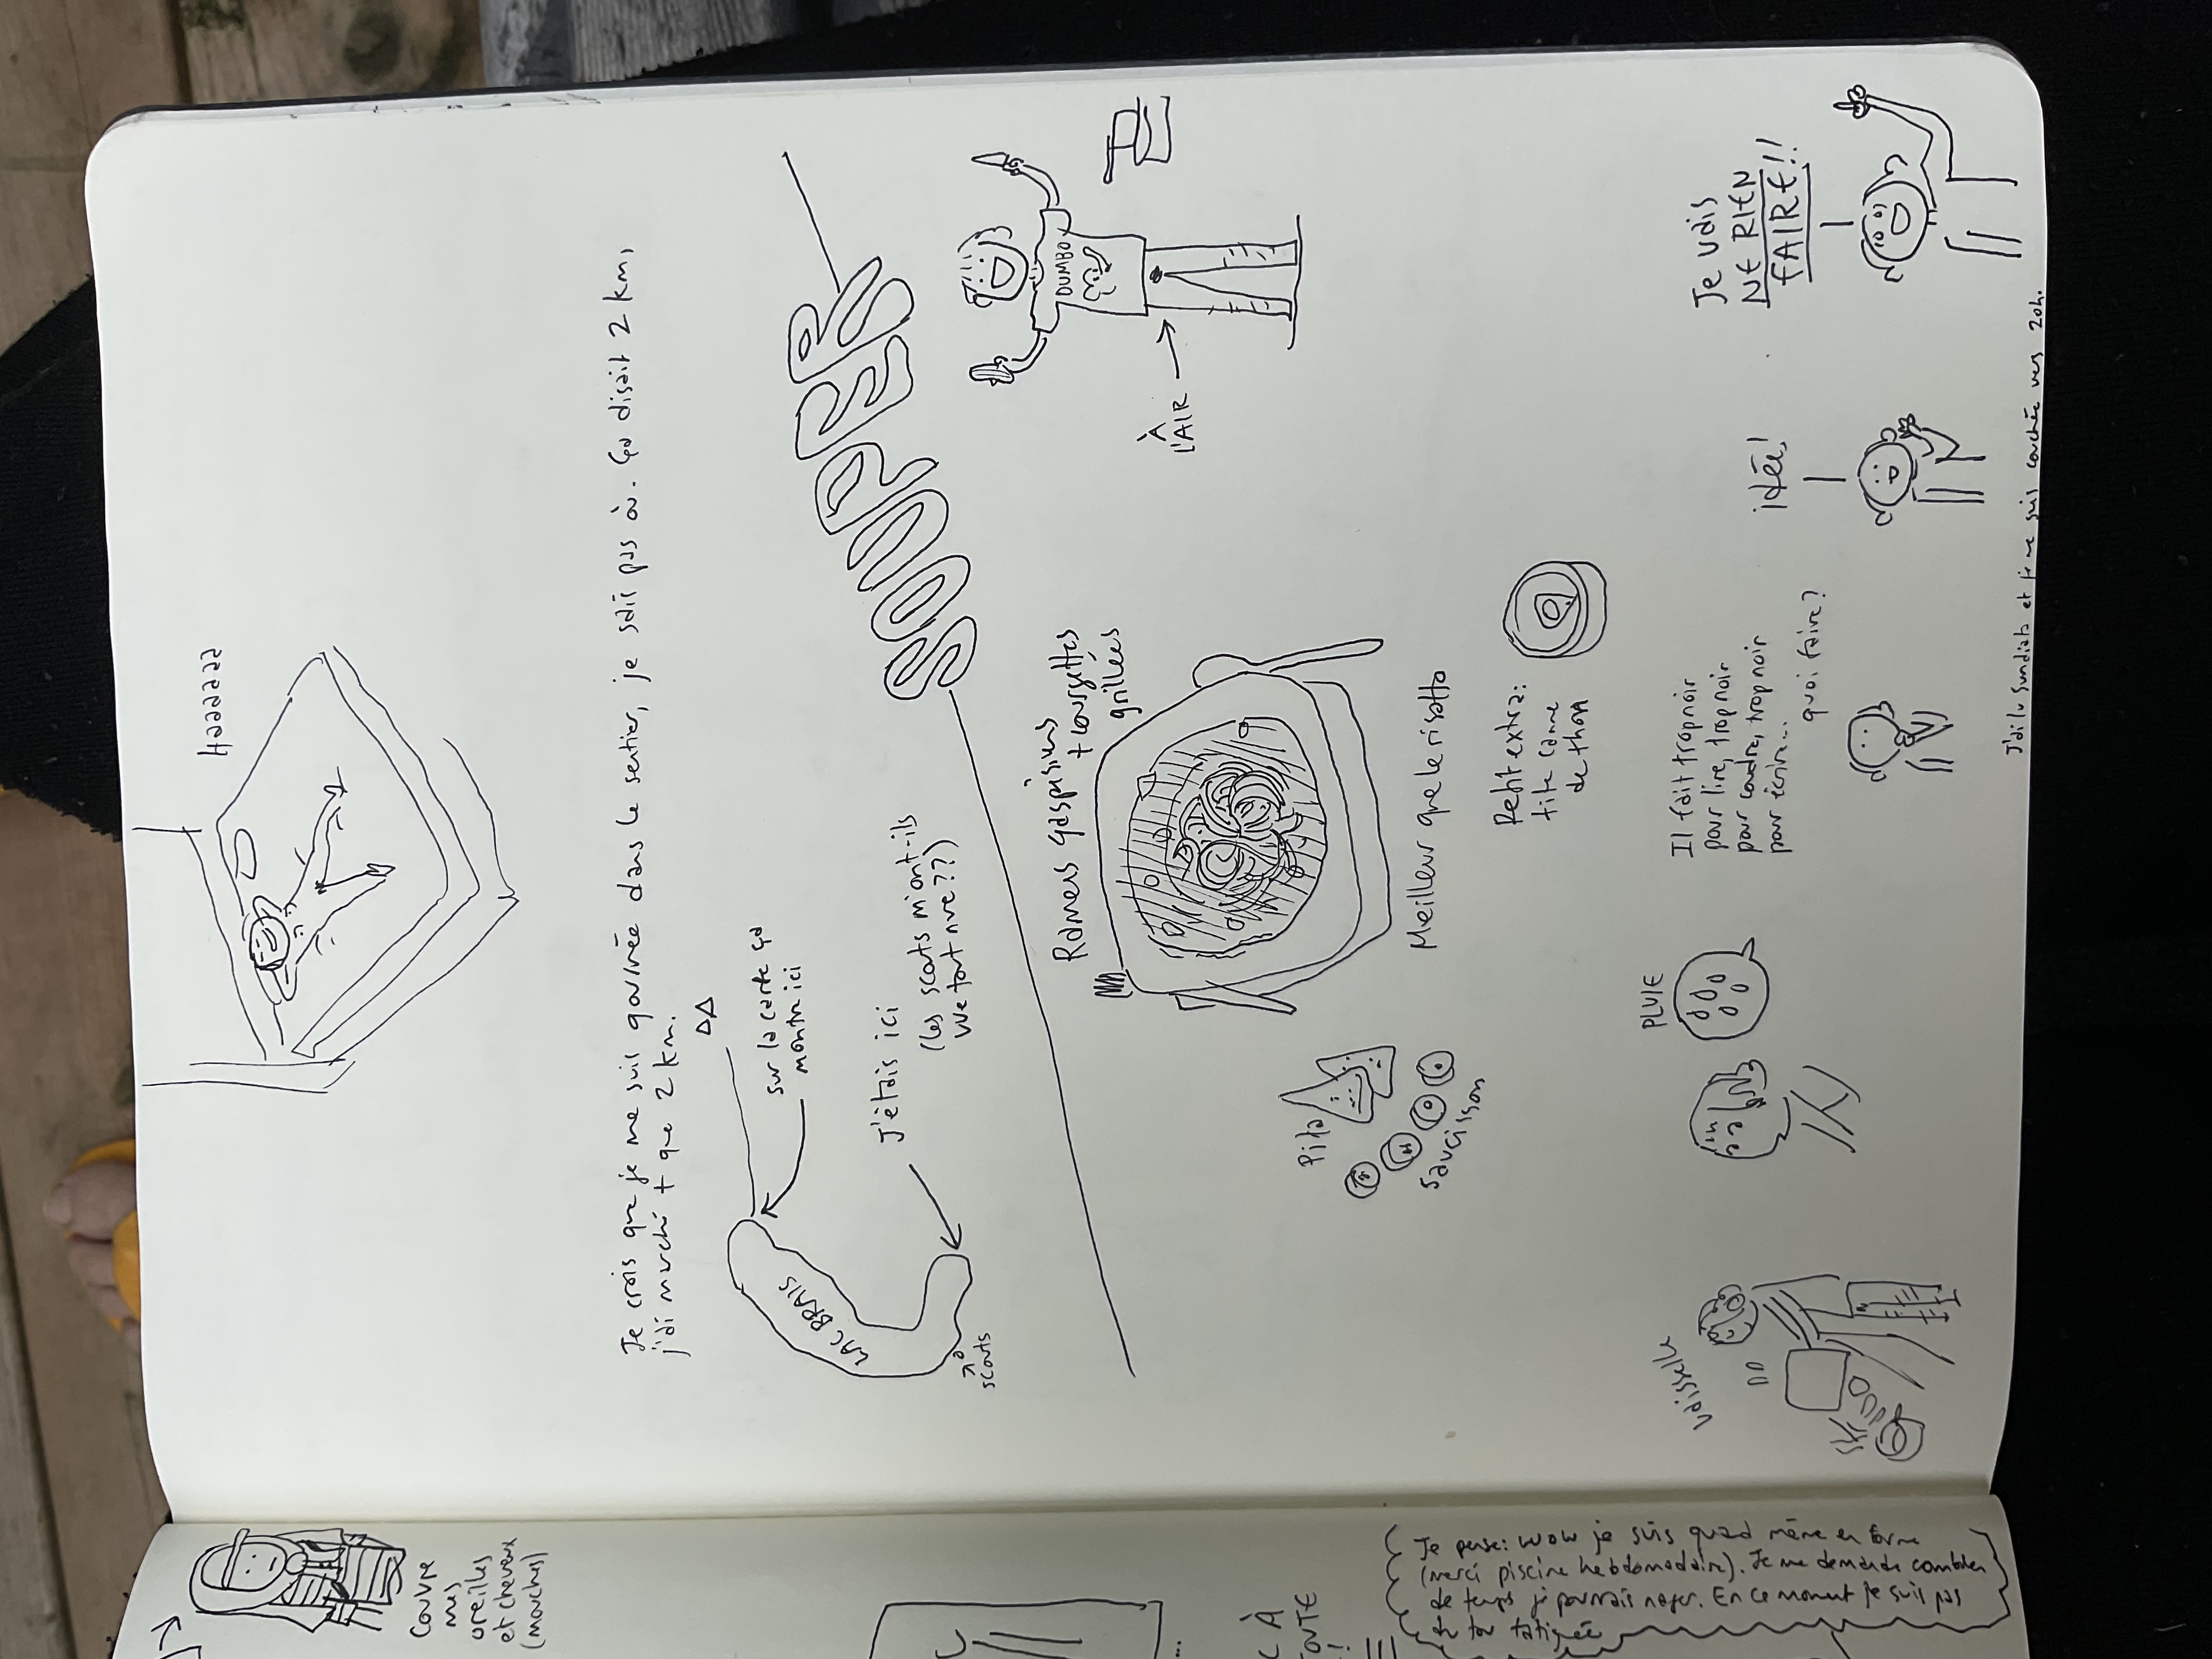 Haaaaaaa
Je crois que je me suis gourrée dans le sentier, je sais pas où. Ça disait 2 km,
j'ai marché + que 2 km.
sur la carte ça
montre ici
LAC BRAIS
J'étais ici
(les scouts m'ont-ils
vue toute nue??)
scouts
SOUPER
DUMBO
À
L'AIR
Ramens gaspésiens
+ courgettes
grillées
Meilleur que le risotto
Pita
saucisson
Petit extra:
tite canne
de thon
vaisselle
PLUIE
Il fait trop noir
pour lire, trop noir
pour coudre, trop noir
pour écrire...
quoi faire?
idée!
Je vais
NE RIEN
FAIRE!!
J'ai lu Sundiata et je me suis couchée vers 20h.
COUVRE
mes
oreilles
et cheveux
(mouches)
Je pense: wow je suis quand même en forme
(merci piscine hebdomadaire). Je me demande combien
de temps je pourrais nager. En ce moment je suis pas
du tout fatiguée